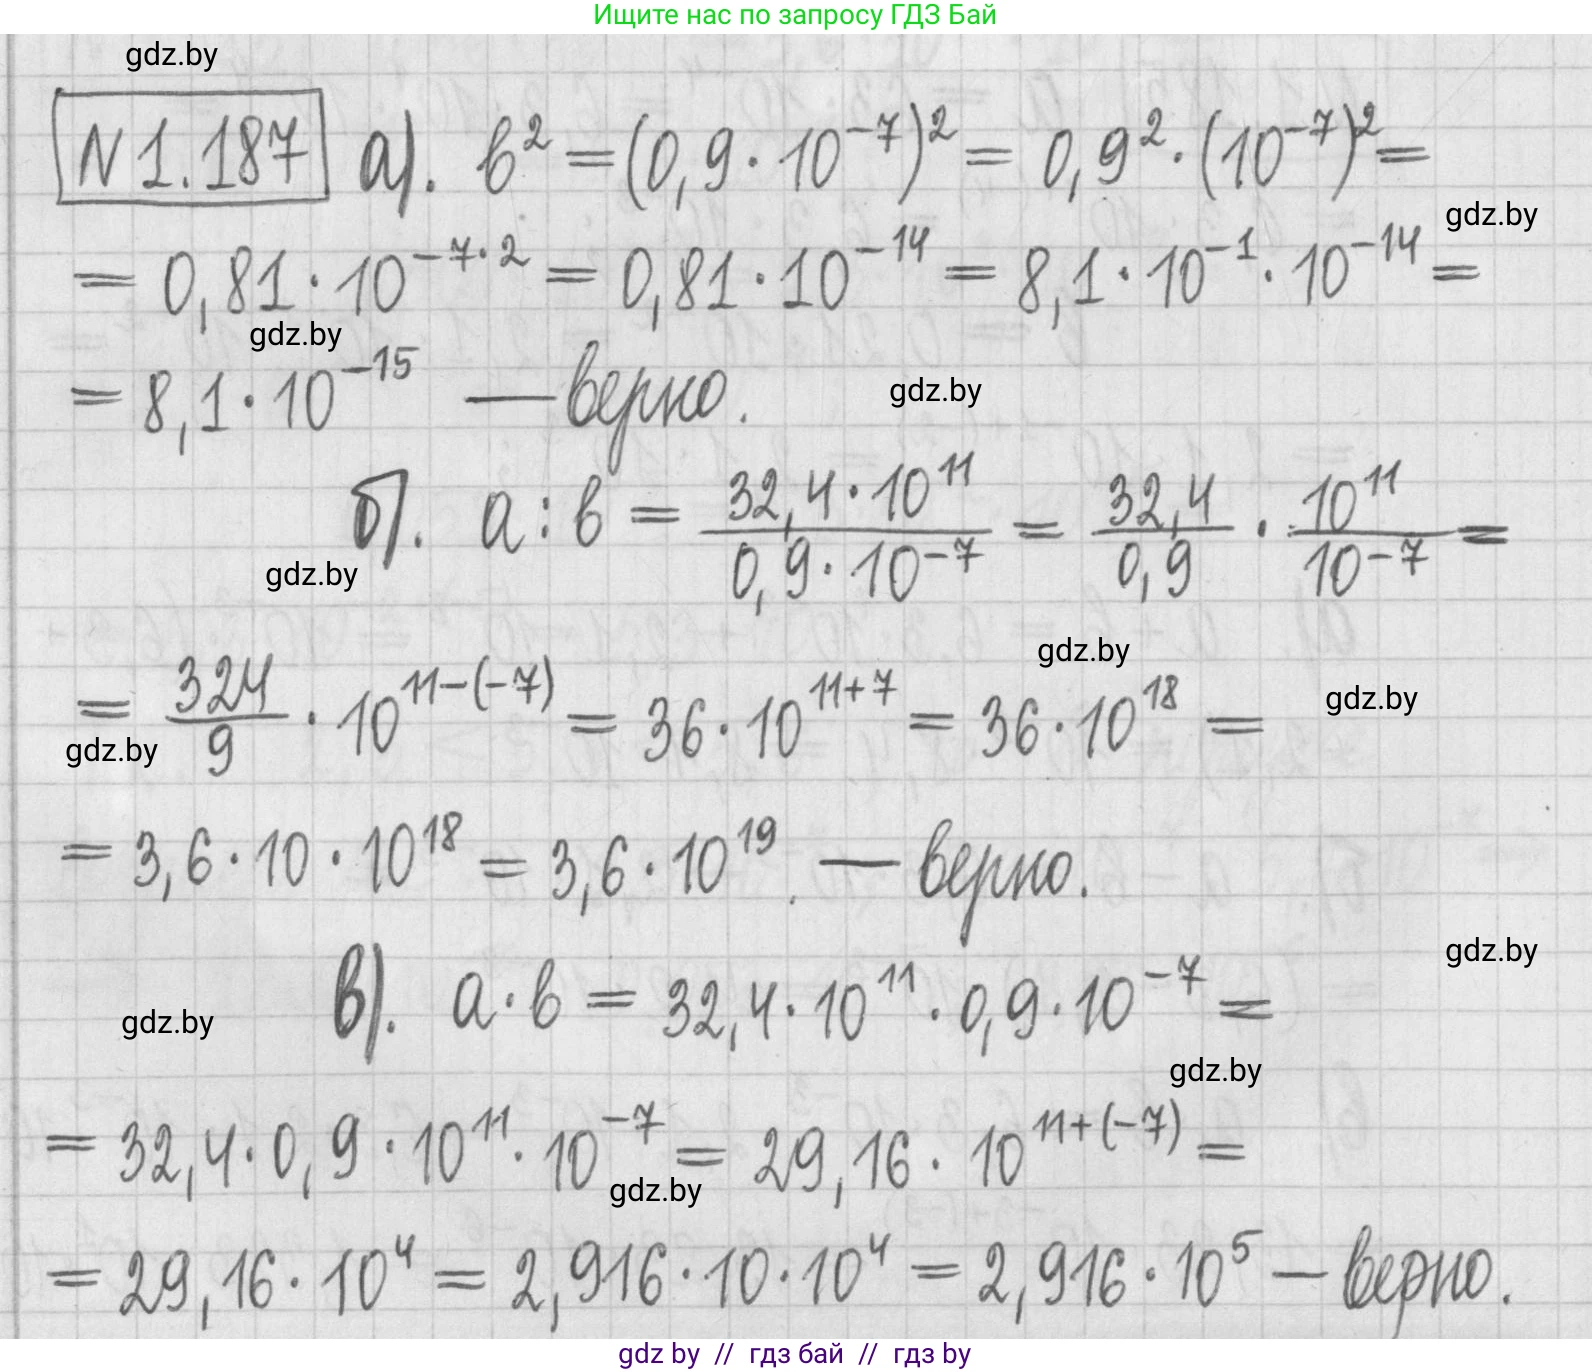 Ищите нас по запросу ГДЗ Бай
gdz.by
N 1.187 а). b² = (0,9 · 10⁻⁷)² = 0,9² · (10⁻⁷)² =
gdz.by
= 0,81 · 10⁻⁷·² = 0,81 · 10⁻¹⁴ = 8,1 · 10⁻¹ · 10⁻¹⁴ =
gdz.by
= 8,1 · 10⁻¹⁵ — верно.
gdz.by
б). a : b = (32,4 · 10¹¹)/(0,9 · 10⁻⁷) = 32,4/0,9 · 10¹¹/10⁻⁷ =
gdz.by
gdz.by
= 324/9 · 10¹¹⁻⁽⁻⁷⁾ = 36 · 10¹¹⁺⁷ = 36 · 10¹⁸ =
gdz.by
gdz.by
= 3,6 · 10 · 10¹⁸ = 3,6 · 10¹⁹. — верно.
gdz.by
в). a · b = 32,4 · 10¹¹ · 0,9 · 10⁻⁷ =
gdz.by
gdz.by
= 32,4 · 0,9 · 10¹¹ · 10⁻⁷ = 29,16 · 10¹¹⁺⁽⁻⁷⁾ =
gdz.by
= 29,16 · 10⁴ = 2,916 · 10 · 10⁴ = 2,916 · 10⁵ — верно.
gdz by // гдз бай // гдз by